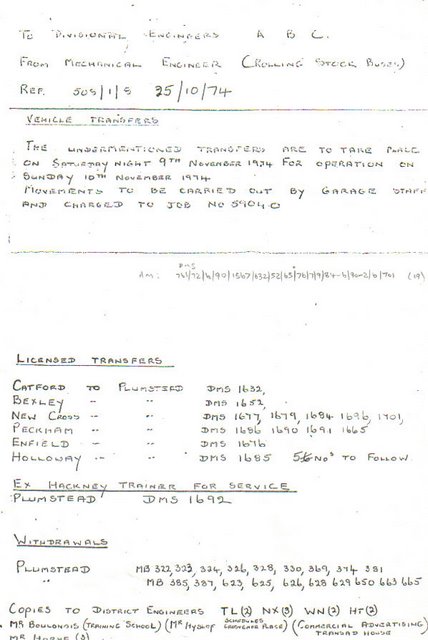 To Divisional Engineers A B C.
From Mechanical Engineer (Rolling Stock Buses)
Ref. 505/1/S 25/10/74
Vehicle Transfers
The undermentioned transfers are to take place
on Saturday night 9th November 1974 for operation on
Sunday 10th November 1974
Movements to be carried out by garage staff
and charged to Job No 5904-0
DMS
(19)
Licensed Transfers
Catford to Plumstead DMS 1632,
Bexley " " DMS 1652,
New Cross " " DMS 1677, 1679, 1684 1696, 1701,
Peckham " " DMS 1686 1690 1691 1665
Enfield " " DMS 1676
Holloway " " DMS 1685 No's to follow.
Ex Hackney Trainer for Service
Plumstead DMS 1692
Withdrawals
Plumstead MB 322, 323, 324, 326, 328, 330, 369, 374 381
" MB 385, 387, 623, 625, 626, 628 629 650 663 665
Copies to District Engineers TL (2) NX (3) WN (2) HT (2)
Mr Boulongis (Training School) (Mr Hyslop Schedules Place) (Commercial Advertising
House
Mr (3)